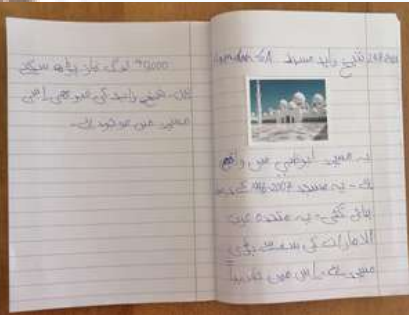 شیخ زاید مسجد
یہ مسجد ابوظبی میں واقع
ہے - یہ مسجد 1996-2007 کے
بنائی گئی - یہ متحدہ عرب
الامارات کی سب سے بڑی
مسجد ہے - اس میں تقریباً
لوگ نماز پڑھ سکتے
ہیں - شیخ زاید کی قبر بھی اسی
مسجد میں موجود ہے -